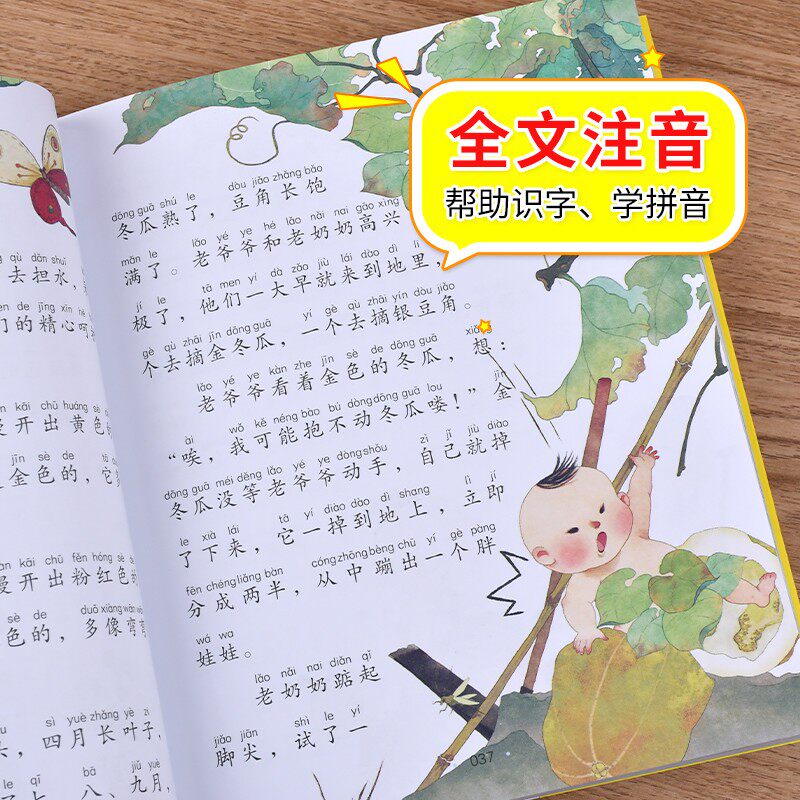 全文注音
帮助识字、学拼音
qù dàn shuǐ
去担水，
de jīng xīn hē
们的精心呵
kāi chū huáng sè
开出黄色的
jīn sè de
金色的，它
kāi chū fěn hóng sè
开出粉红色的
sè de duō xiàng wān wān
色的，多像弯弯
sì yuè zhǎng yè zi
四月长叶子，
qī bā jiǔ yuè
八、九月，
dōng guā shú le dòu jiǎo zhǎng bǎo
冬瓜熟了，豆角长饱
mǎn le lǎo yé ye hé lǎo nǎi nai gāo xìng
满了。老爷爷和老奶奶高兴
jí le tā men yí dà zǎo jiù lái dào dì lǐ
极了，他们一大早就来到地里，
gè qù zhāi jīn dōng guā yí gè qù zhāi yín dòu jiǎo
个去摘金冬瓜，一个去摘银豆角。
lǎo yé ye kàn zhe jīn sè de dōng guā xiǎng
老爷爷看着金色的冬瓜，想：
ài wǒ kě néng bào bú dòng dōng guā lou jīn
“唉，我可能抱不动冬瓜喽！”金
dōng guā méi děng lǎo yé ye dòng shǒu zì jǐ jiù diào
冬瓜没等老爷爷动手，自己就掉
le xià lái tā yí diào dào dì shang lì jí
了下来，它一掉到地上，立即
fēn chéng liǎng bàn cóng zhōng bèng chū yí gè pàng
分成两半，从中蹦出一个胖
wá wa
娃娃。
lǎo nǎi nai diǎn qǐ
老奶奶踮起
jiǎo jiān shì le yí
脚尖，试了一
037